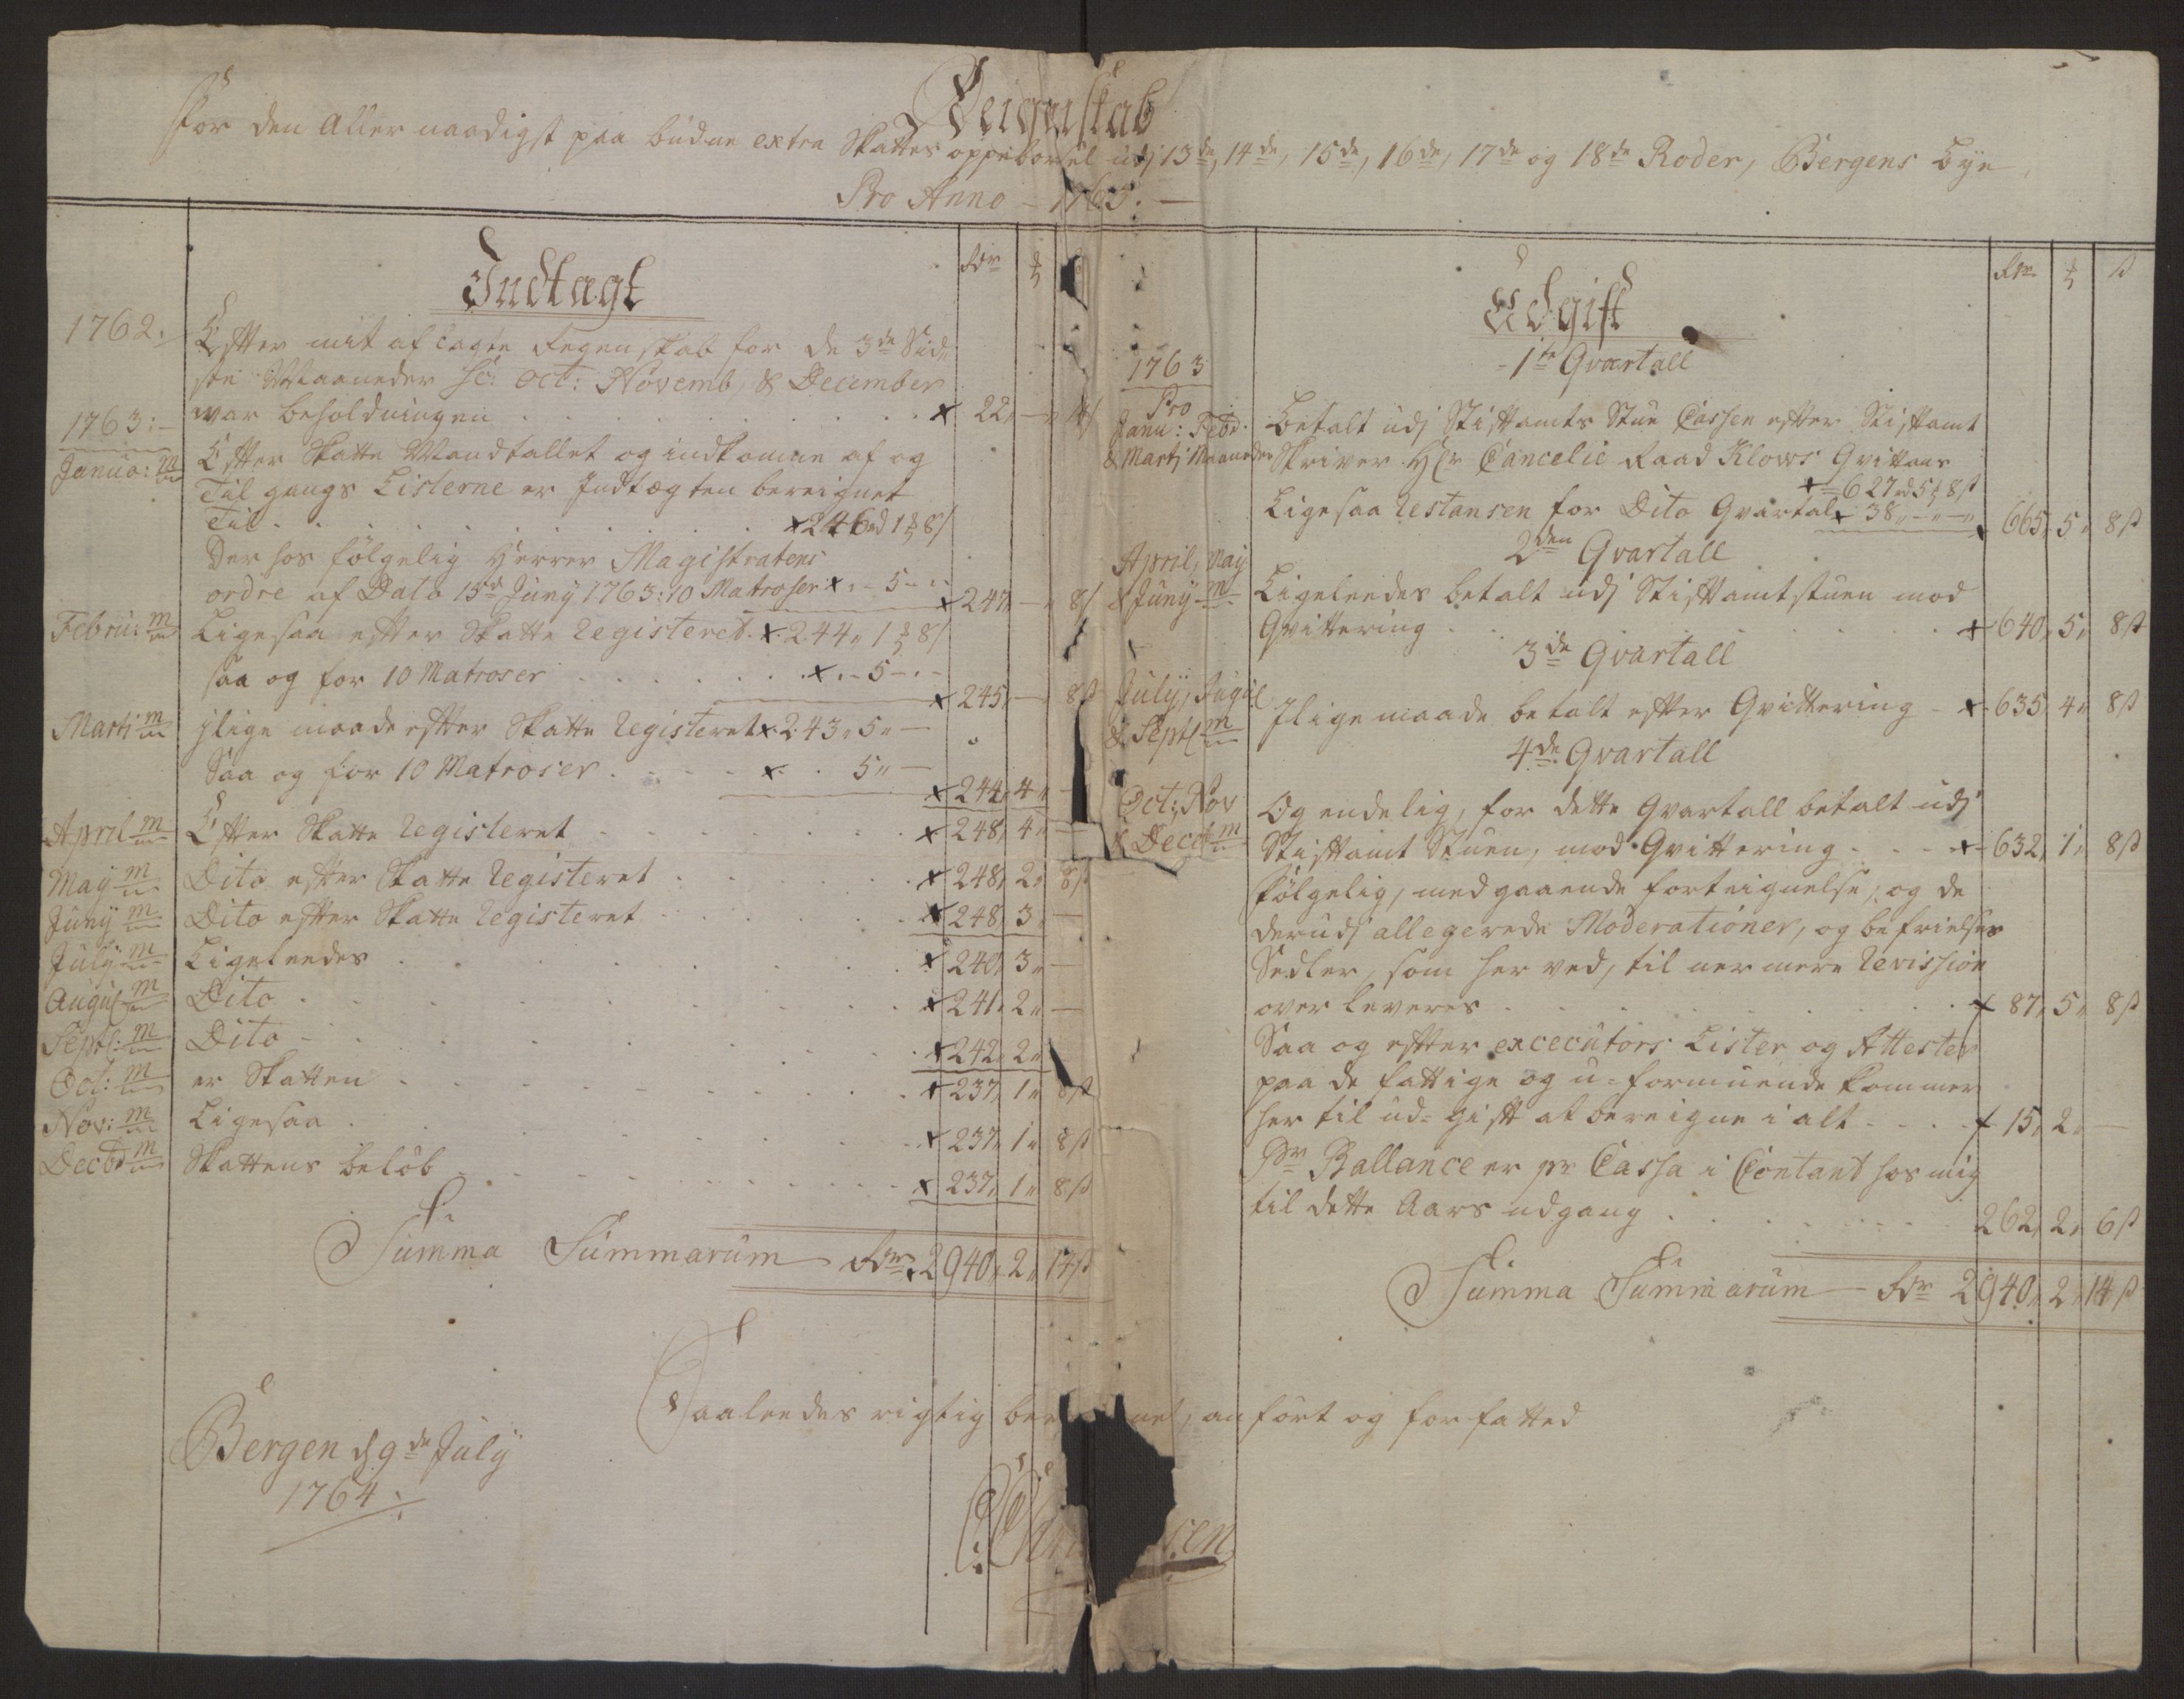 Reigenskab
for den Aller naadigst paa budne extra Skattes oppebørsel udj 13de, 14de, 15de, 16de, 17de og 18de Roder, Bergens Bye,
Pro Anno - 1763. -
Indtagt
Rdr
1762:
Efter mit aflagte Regenskab for de 3de Sid-
ste Maaneder sc: Oct: Novemb, & December
war beholdningen . . . . x 22 " - " 4 s
1763:-
Janua: m
Efter Skatte Mandtallet og indkomne af og
Til gangs Listerne er Indtægten bereignet
Til . . . . x 246 rd 1 8 s
Der hos følgelig Herrer Magistratens
ordre af Dato 15de Juny 1763: 10 Matroser x " - 5 - " x 247 " - " 8 s
Febru: m
Ligesaa efter Skatte Registeret. x 244 " 1 8 s
saa og for 10 Matroser . . . . x " - 5 - " - x 245 " - 8 s
Marti m
jlige maade efter Skatte Registeret x 243 " 5 " -
Saa og for 10 Matroser . . . x . 5 " - x 244 " 4 " -
April m
Efter Skatte Registeret . . . . x 248 " 4 " -
May m
Dito efter Skatte Registeret . . . . x 248 " 2 " 8 s
Juny m
Dito efter Skatte Registeret . . . . x 248 " 3 " -
July m
Ligeleedes . . . . x 240 " 3 " -
Augus m
Dito . . . . x 241 " 2 " -
Sept: m
Dito . . . . x 242 " 2 "
Oct: m
er Skatten . . . . x 237 " 1 " 8 s
Nov: m
Ligesaa . . . . x 237 " 1 " 8 s
Decbr m
Skattens beløb . . . . x 237 " 1 " 8 s
Summa Summarum Rdr 2940 " 2 " 14 s
Udgift
Rdr s
1763
1te Qvartall
Pro
Janu: Febr:
& Martj Maaneder
Betalt udj Stiftamts Stue Cassen efter Stiftamt
Skriver Hr Cancelie Raad Klows Qvittans
x 627 rd 5 8 s
Ligesaa Restansen for Dito Qvartal x 38 " - " - " x 665 " 5 " 8 s
2den Qvartall
April, May
& Juny m
Ligeleedes betalt udj Stiftamtstuen mod
Qvittering . . . . x 640 " 5 " 8 s
3de Qvartall
July, Augus
& Sept m
Jlige maade betalt efter Qvittering - x 635 " 4 " 8 s
4de Qvartall
Oct: Nov
& Decb m
Og endelig, for dette Qvartall betalt udj
Stiftamt Stuen, mod Qvittering - - - x 632 " 1 " 8 s
følgelig, medgaaende forteignelse, og de
derudj allegerede Moderationer, og befrielses
Sedler, som her ved, til nermere Revission
over leveres . . . . x 87 " 5 " 8 s
Saa og efter excecutors Lister og Attester
paa de fattige og u-formuende kommer
her til ud-gift at bereigne i alt - - - x 15 " 2 " -
Pr Ballance er pr Cassa i Contant hos mig
til dette Aars udgang . . . . 262 " 2 " 6 s
Summa Summarum - Rdr 2940 " 2 " 14 s
Saaleedes rigtig an ført og forfatted
Bergen d 9de July
1764: